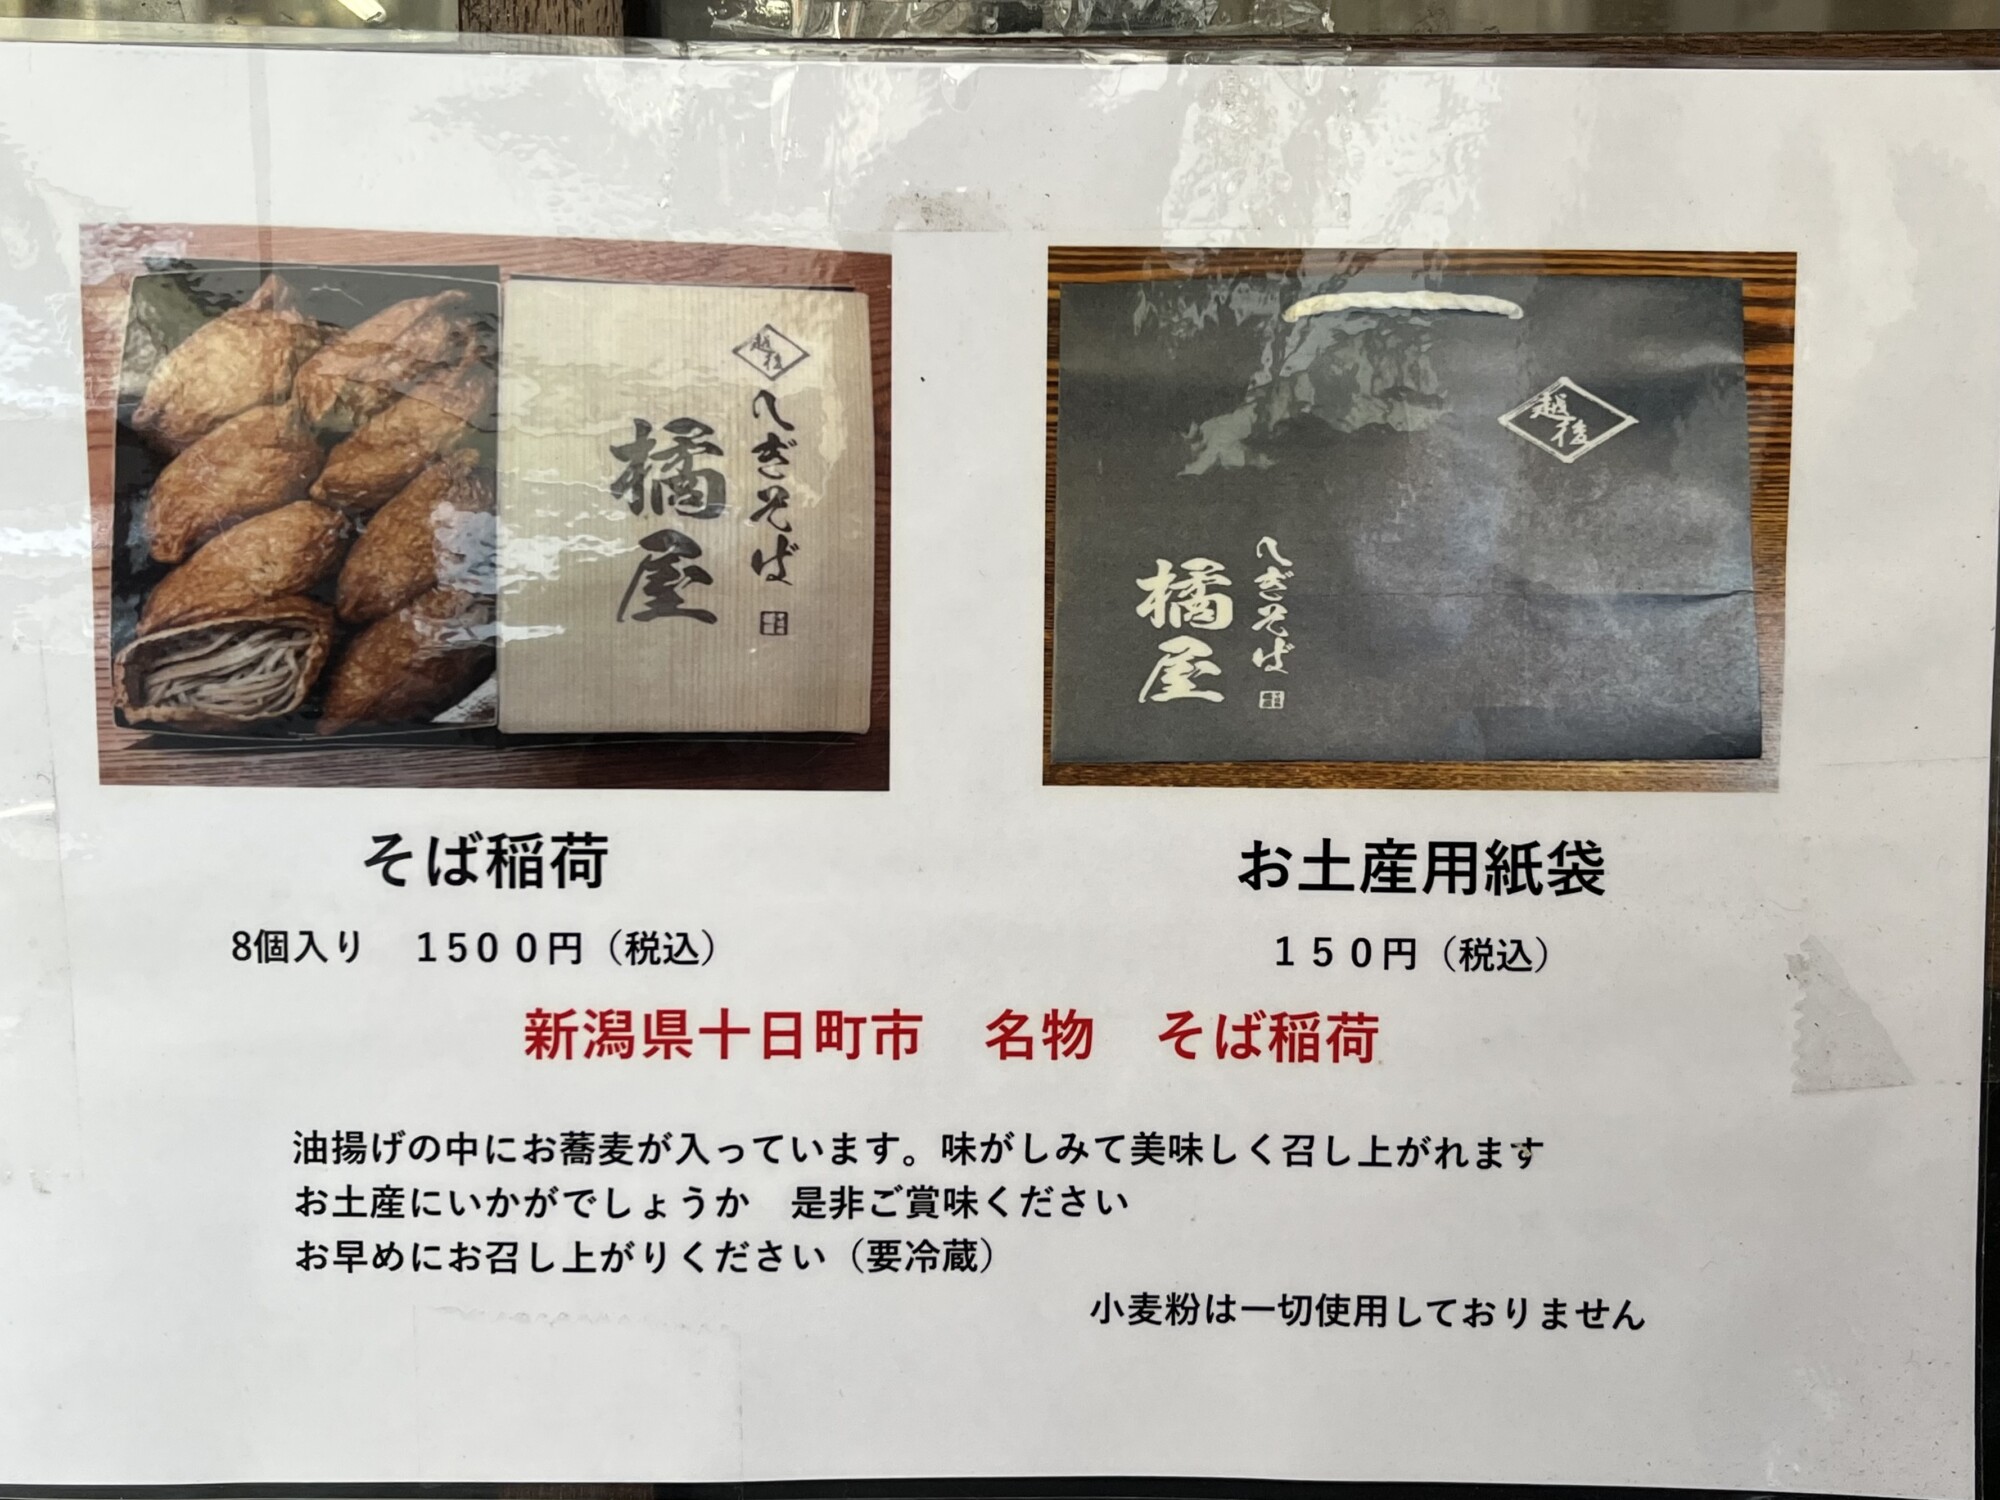 越後
へぎそば
橘屋
越後
へぎそば
橘屋
そば稲荷
8個入り　１５００円（税込）
お土産用紙袋
１５０円（税込）
新潟県十日町市　名物　そば稲荷
油揚げの中にお蕎麦が入っています。味がしみて美味しく召し上がれます
お土産にいかがでしょうか　是非ご賞味ください
お早めにお召し上がりください（要冷蔵）
小麦粉は一切使用しておりません